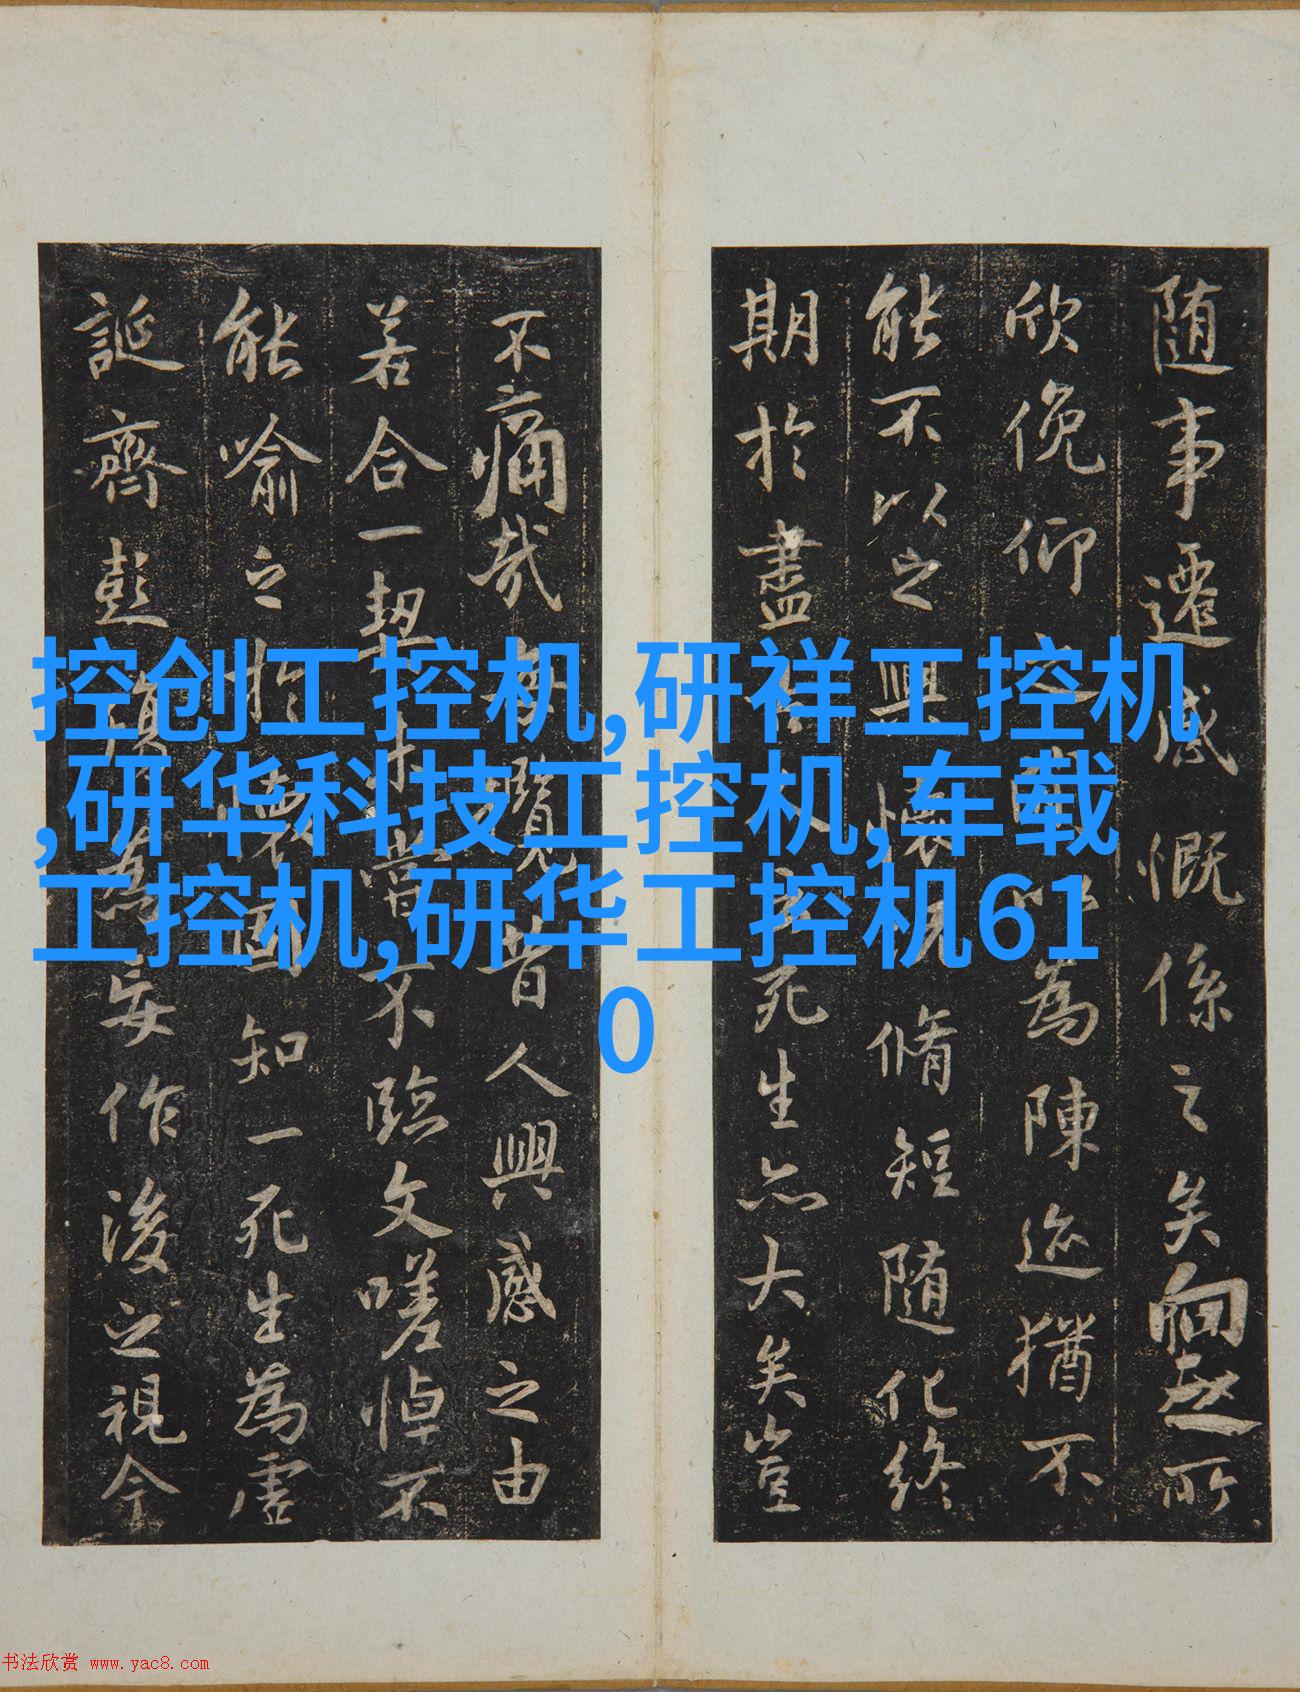 随事遷感慨係之矣向之所
欣俛仰之間以為陳迹猶不
能不以之興懷況脩短随化終
期於盡古人云死生亦大矣豈
不痛哉每覽昔人興感之由
若合一契未嘗不臨文嗟悼不
能喻之於懷固知一死生為虛
誕齊彭殤為妄作後之視今
控创工控机,研祥工控机
,研华科技工控机,车载
工控机,研华工控机61
0
书法欣赏 www.yac8.com